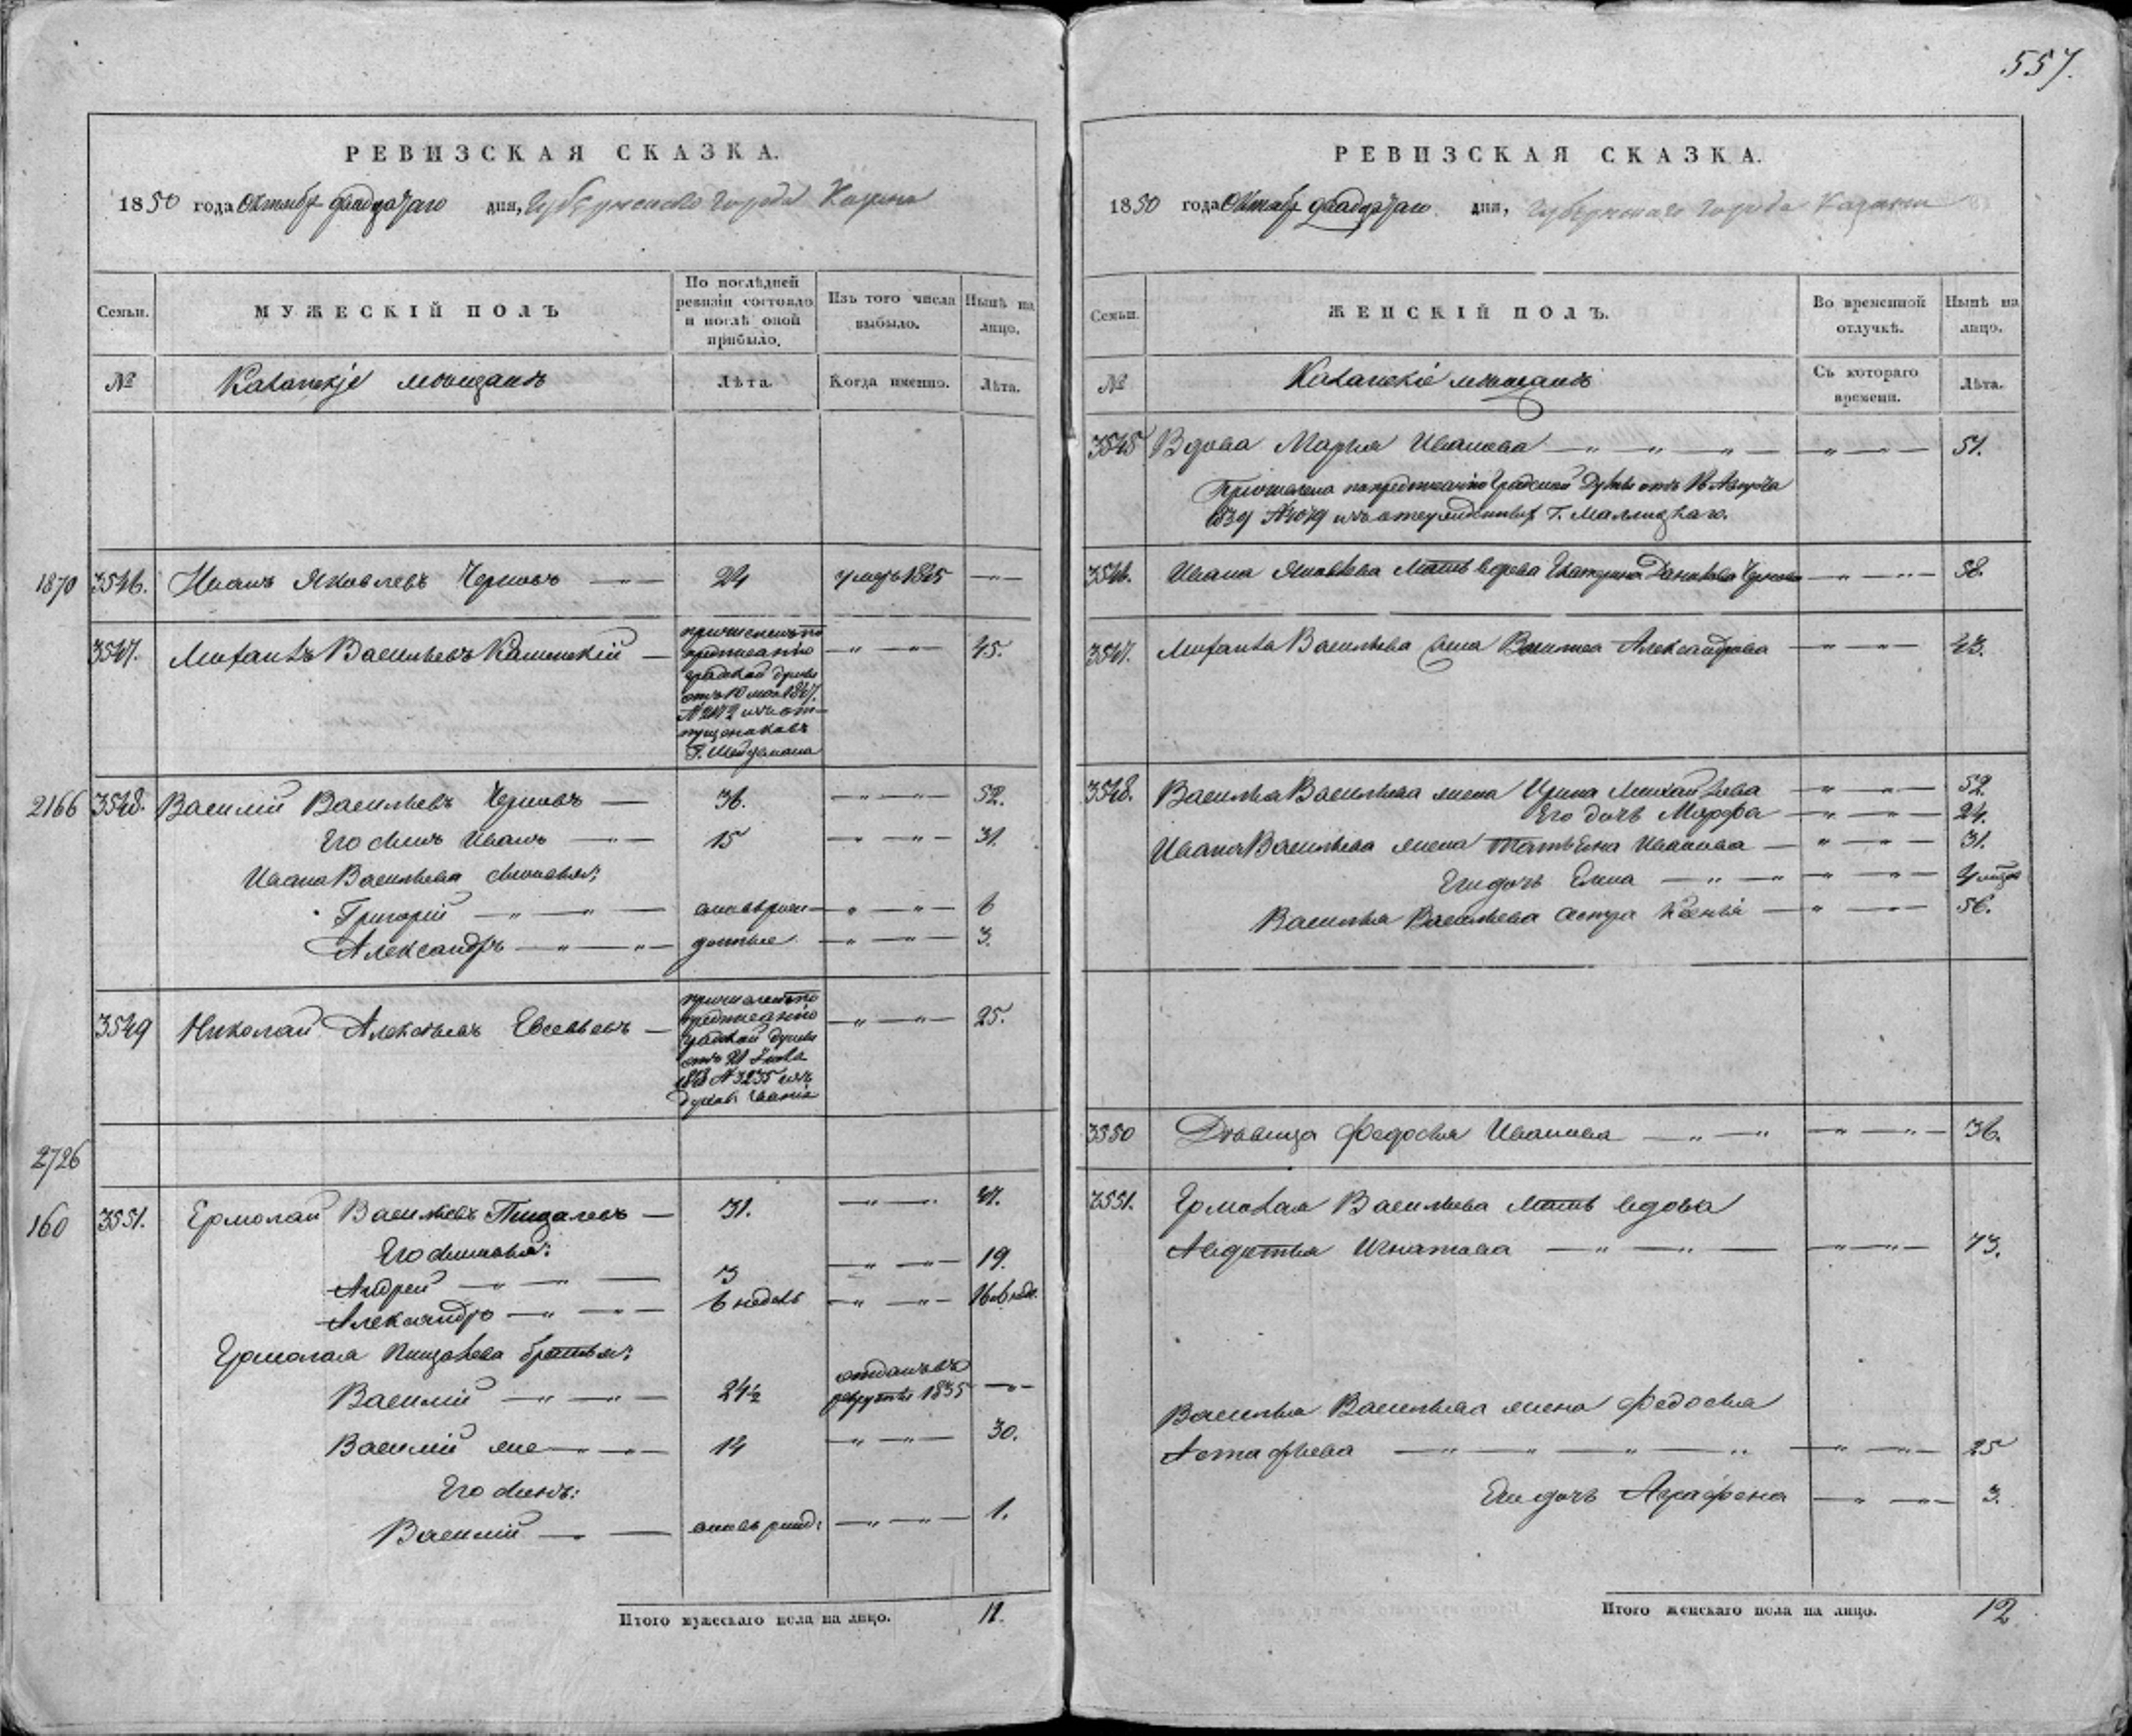 557.
РЕВИЗСКАЯ СКАЗКА.
1850 года Октября двадцатаго дня, Губернскаго города Казани
Семьи.
МУЖЕСКІЙ ПОЛЪ
По послѣдней ревизіи состояло и послѣ оной прибыло.
Изъ того числа выбыло.
Нынѣ на лицо.
№
Казанскіе мѣщане
Лѣта.
Когда именно.
Лѣта.
1870 3546. Иванъ Яковлевъ Черновъ 24 умеръ 1845
3547. Василъевъ Каменскій 45.
причисленъ по
предписанію
градской думы
отъ 10 мая 1847.
№ 2172 изъ от-
пущениковъ
Г.
2166 3548. Василій Васильевъ Черновъ 36. 52.
Его сынъ Иванъ 15 31.
Ивана Васильева сыновья:
Григорій послѣ рев 6
Александръ 3.
3549 Николай Алексѣевъ Евсевьевъ 25.
причисленъ по
предписанію
градской думы
отъ 21
№ 3235 изъ
духов. званія
2726
160 3551. Ермолай Васильевъ Пищалевъ 31. 47.
Его сыновья:
Андрей 3 19.
Александръ 6 недель 16
Ермолая Пищалева братья:
Василій 24½ отданъ въ рекруты 1835
Василій же 14 30.
Его сынъ:
Василій 1.
Итого мужескаго пола на лицо. 11.
РЕВИЗСКАЯ СКАЗКА.
1850 года Октября двадцатаго дня, Губернскаго города Казани
Семьи.
ЖЕНСКІЙ ПОЛЪ.
Во временной отлучкѣ.
Нынѣ на лицо.
№
Казанскіе мѣщане
Съ котораго времени.
Лѣта.
3545 Вдова Марья Иванова 51.
Причислена по предписанію Градской Думы отъ 16 Августа
1839 № 4079 изъ Г.
3546. Ивана Яковлева мать вдова Екатерина Чернова 58.
3547. Васильева жена Александрова 43.
3548. Василья Васильева жена Ирина Михайлова 52.
Его дочь Марфа 24.
Ивана Васильева жена Татьяна Иванова 31.
Ихъ дочь Елена
Василья Васильева сестра Ксенія 56.
3550 Дѣвица Федосья Иванова 36.
3551. Ермолая Васильева мать вдова
Авдотья Игнатьева 73.
Василья Васильева жена Федосья
Астафьева 25
Ихъ дочь Аграфена 3.
Итого женскаго пола на лицо. 12